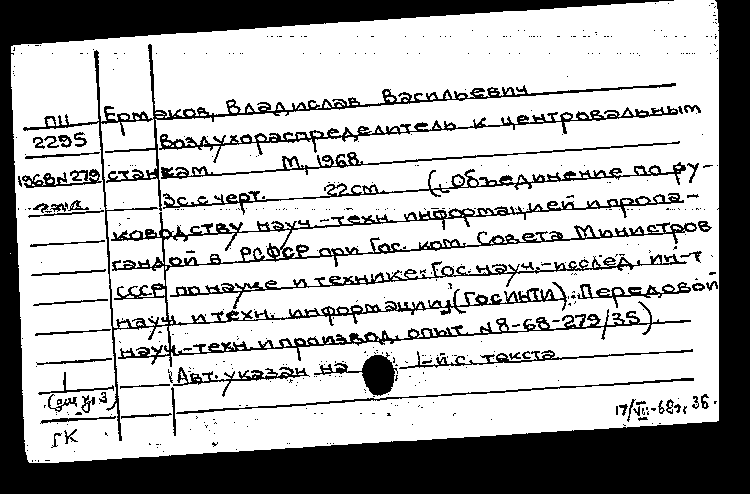 ПЦ Ермаков, Владислав Васильевич
2295 Воздухораспределитель к центровальным
1968 N 279 станкам. М., 1968.
3с. с черт. 22см. (Объединение по ру-
ководству науч.-техн. информацией и пропа-
гандой в РСФСР при Гос. ком. Совета Министров
СССР по науке и технике. Гос. науч.-исслед. ин-т
науч. и техн. информации (ГОСИНТИ). Передовой
науч.-техн. и производ. опыт. N 8-68-279/35).
Авт. указан на 1-й с. текста
1
ГК 17/VII-68г. 36.